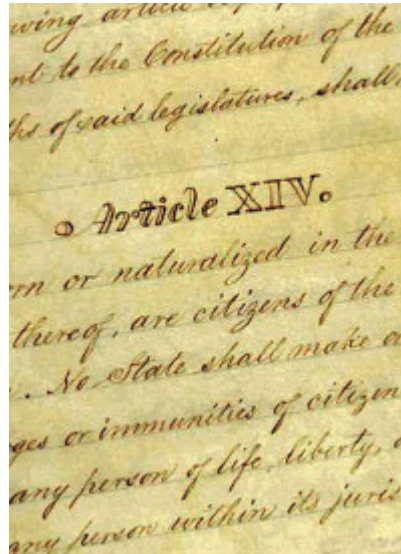 wing article
nt to the Constitution of the
ths of said legislatures, shall
Article XIV.
rn or naturalized in the
thereof, are citizens of the
. No State shall make o
ges or immunities of citizen
any person of life, liberty, o
any person within its juris